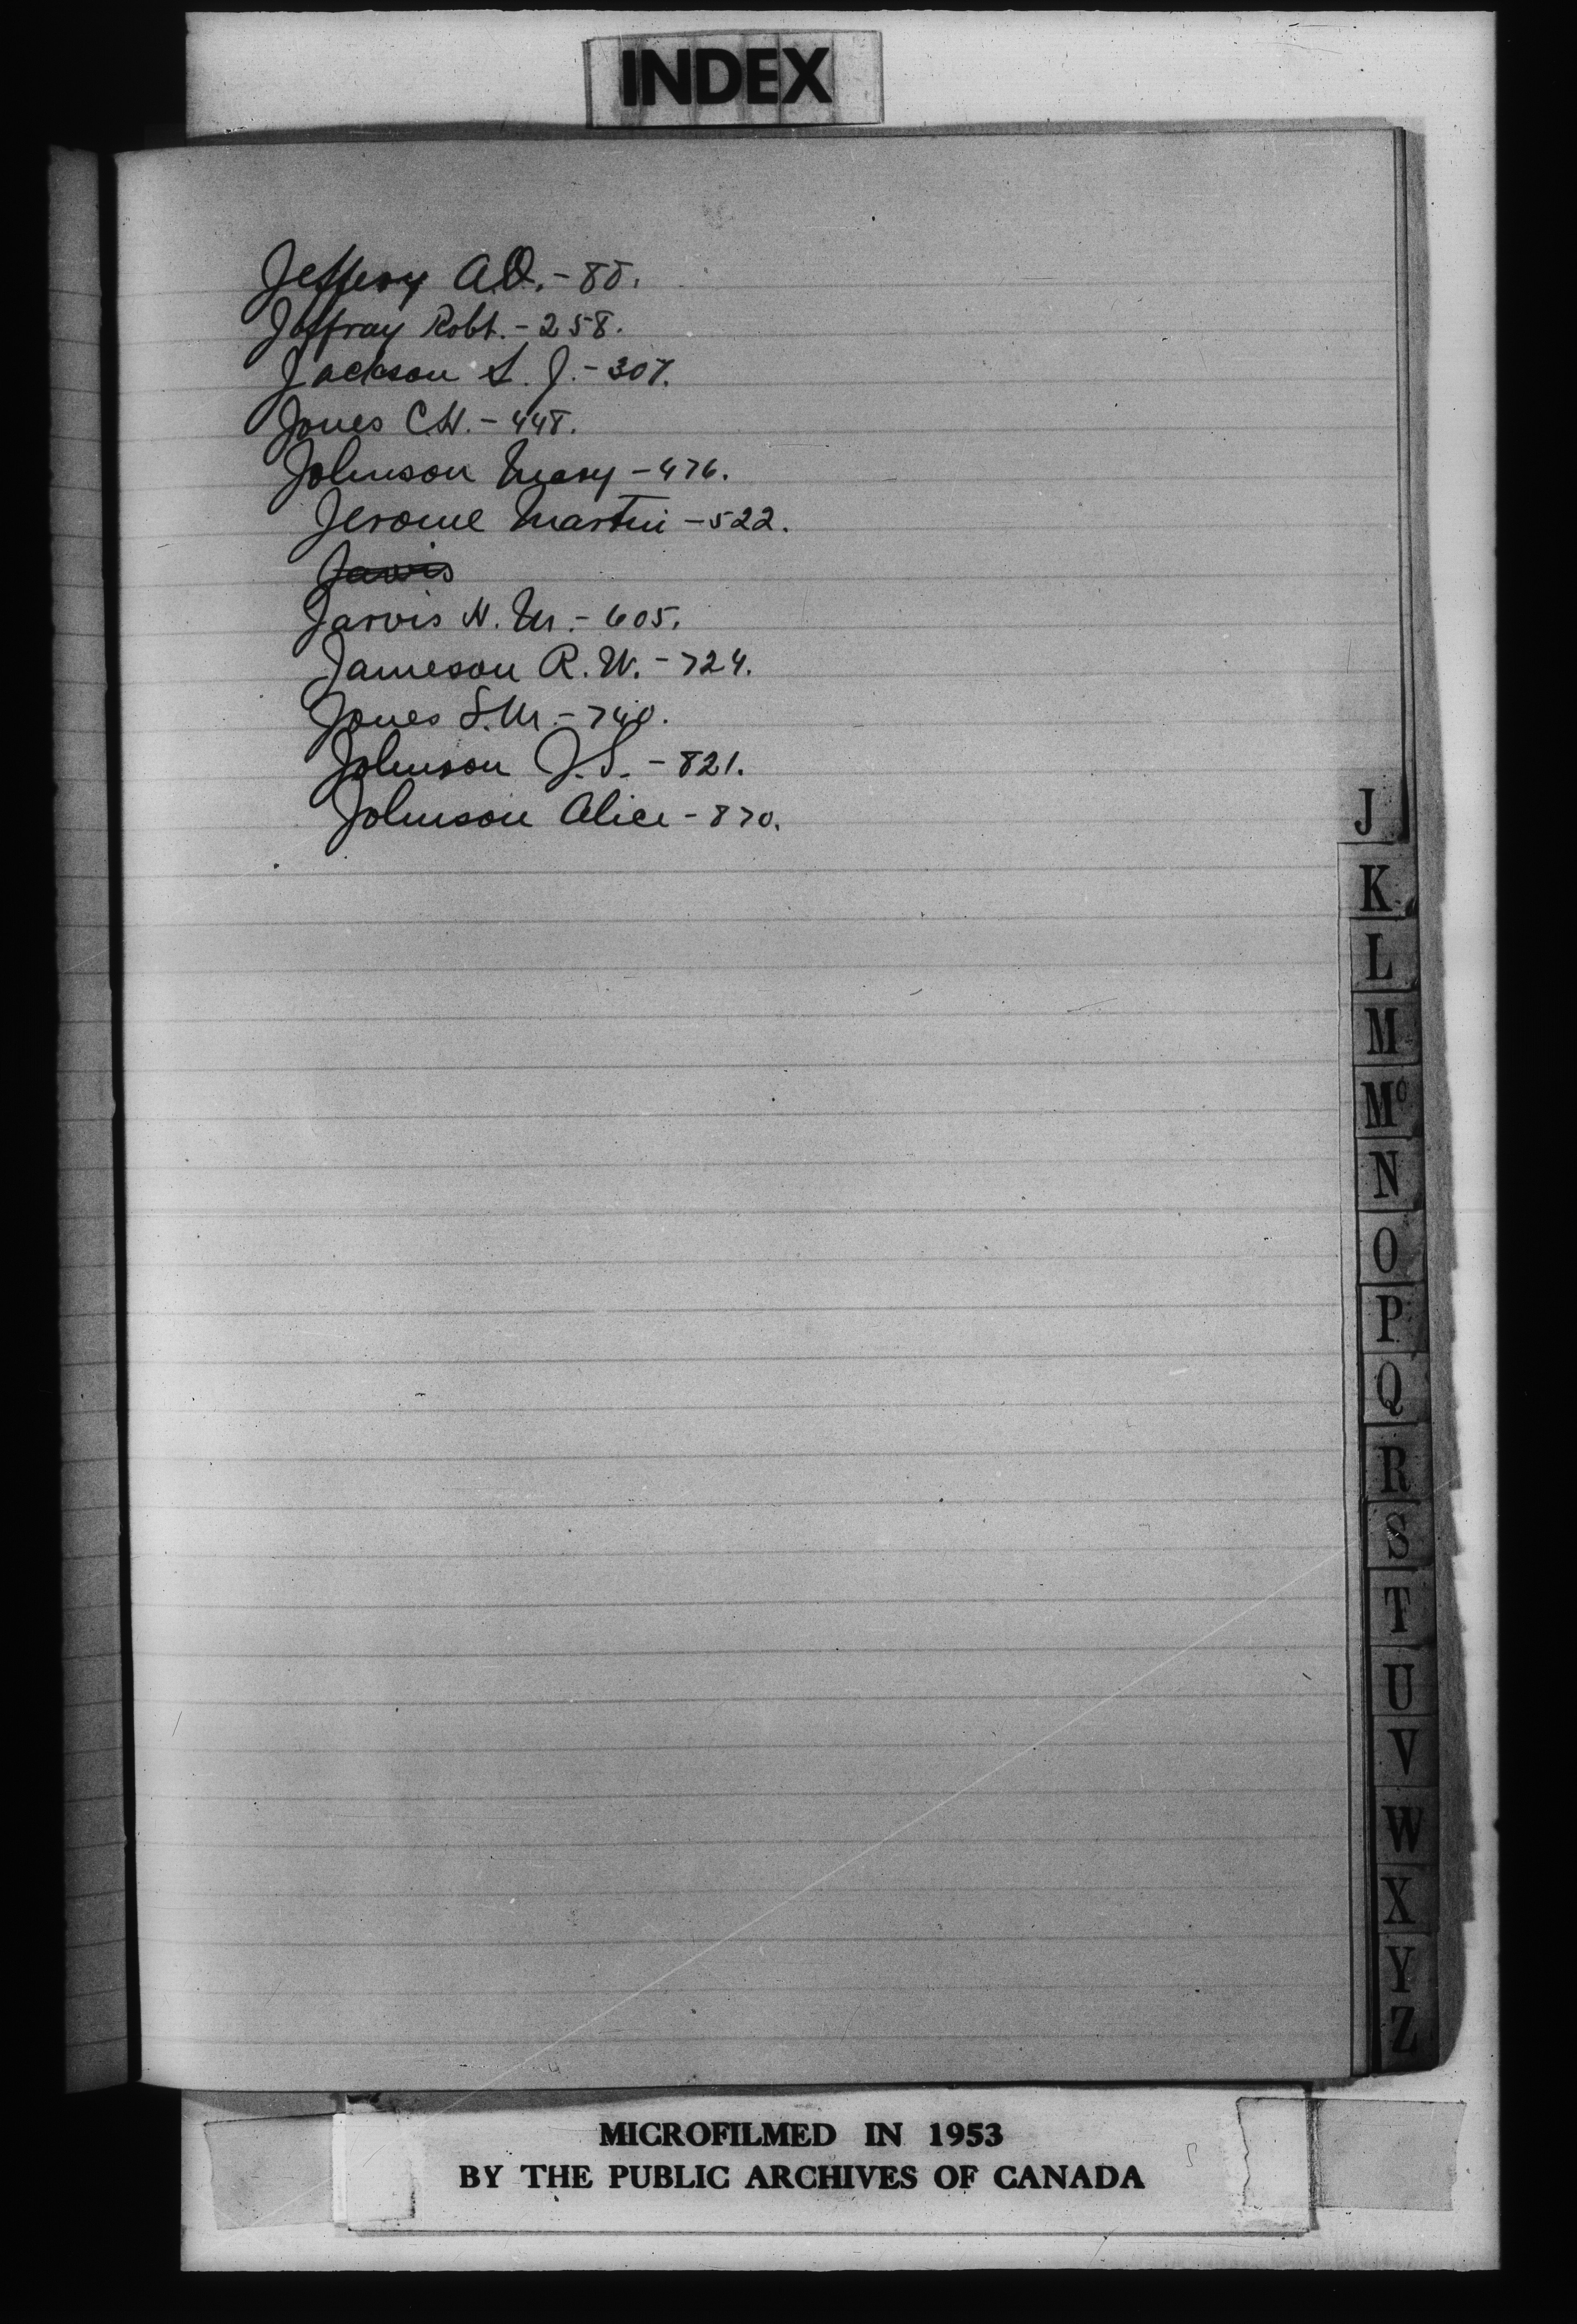 INDEX
Jeffery A.O. - 88.
Joffray Robt. - 258.
Jackson S. J. - 307.
Jones C.H. - 448.
Johnson Mary - 476.
Jerome Martin - 522.
Jarvis
Jarvis H. M. - 605.
Jameson R. W. - 724.
Jones S. M. - 740.
Johnson J. S. - 821.
Johnson Alice - 870.
J
K
L
M
Mc
N
O
P
Q
R
S
T
U
V
W
X
Y
Z
MICROFILMED IN 1953
BY THE PUBLIC ARCHIVES OF CANADA